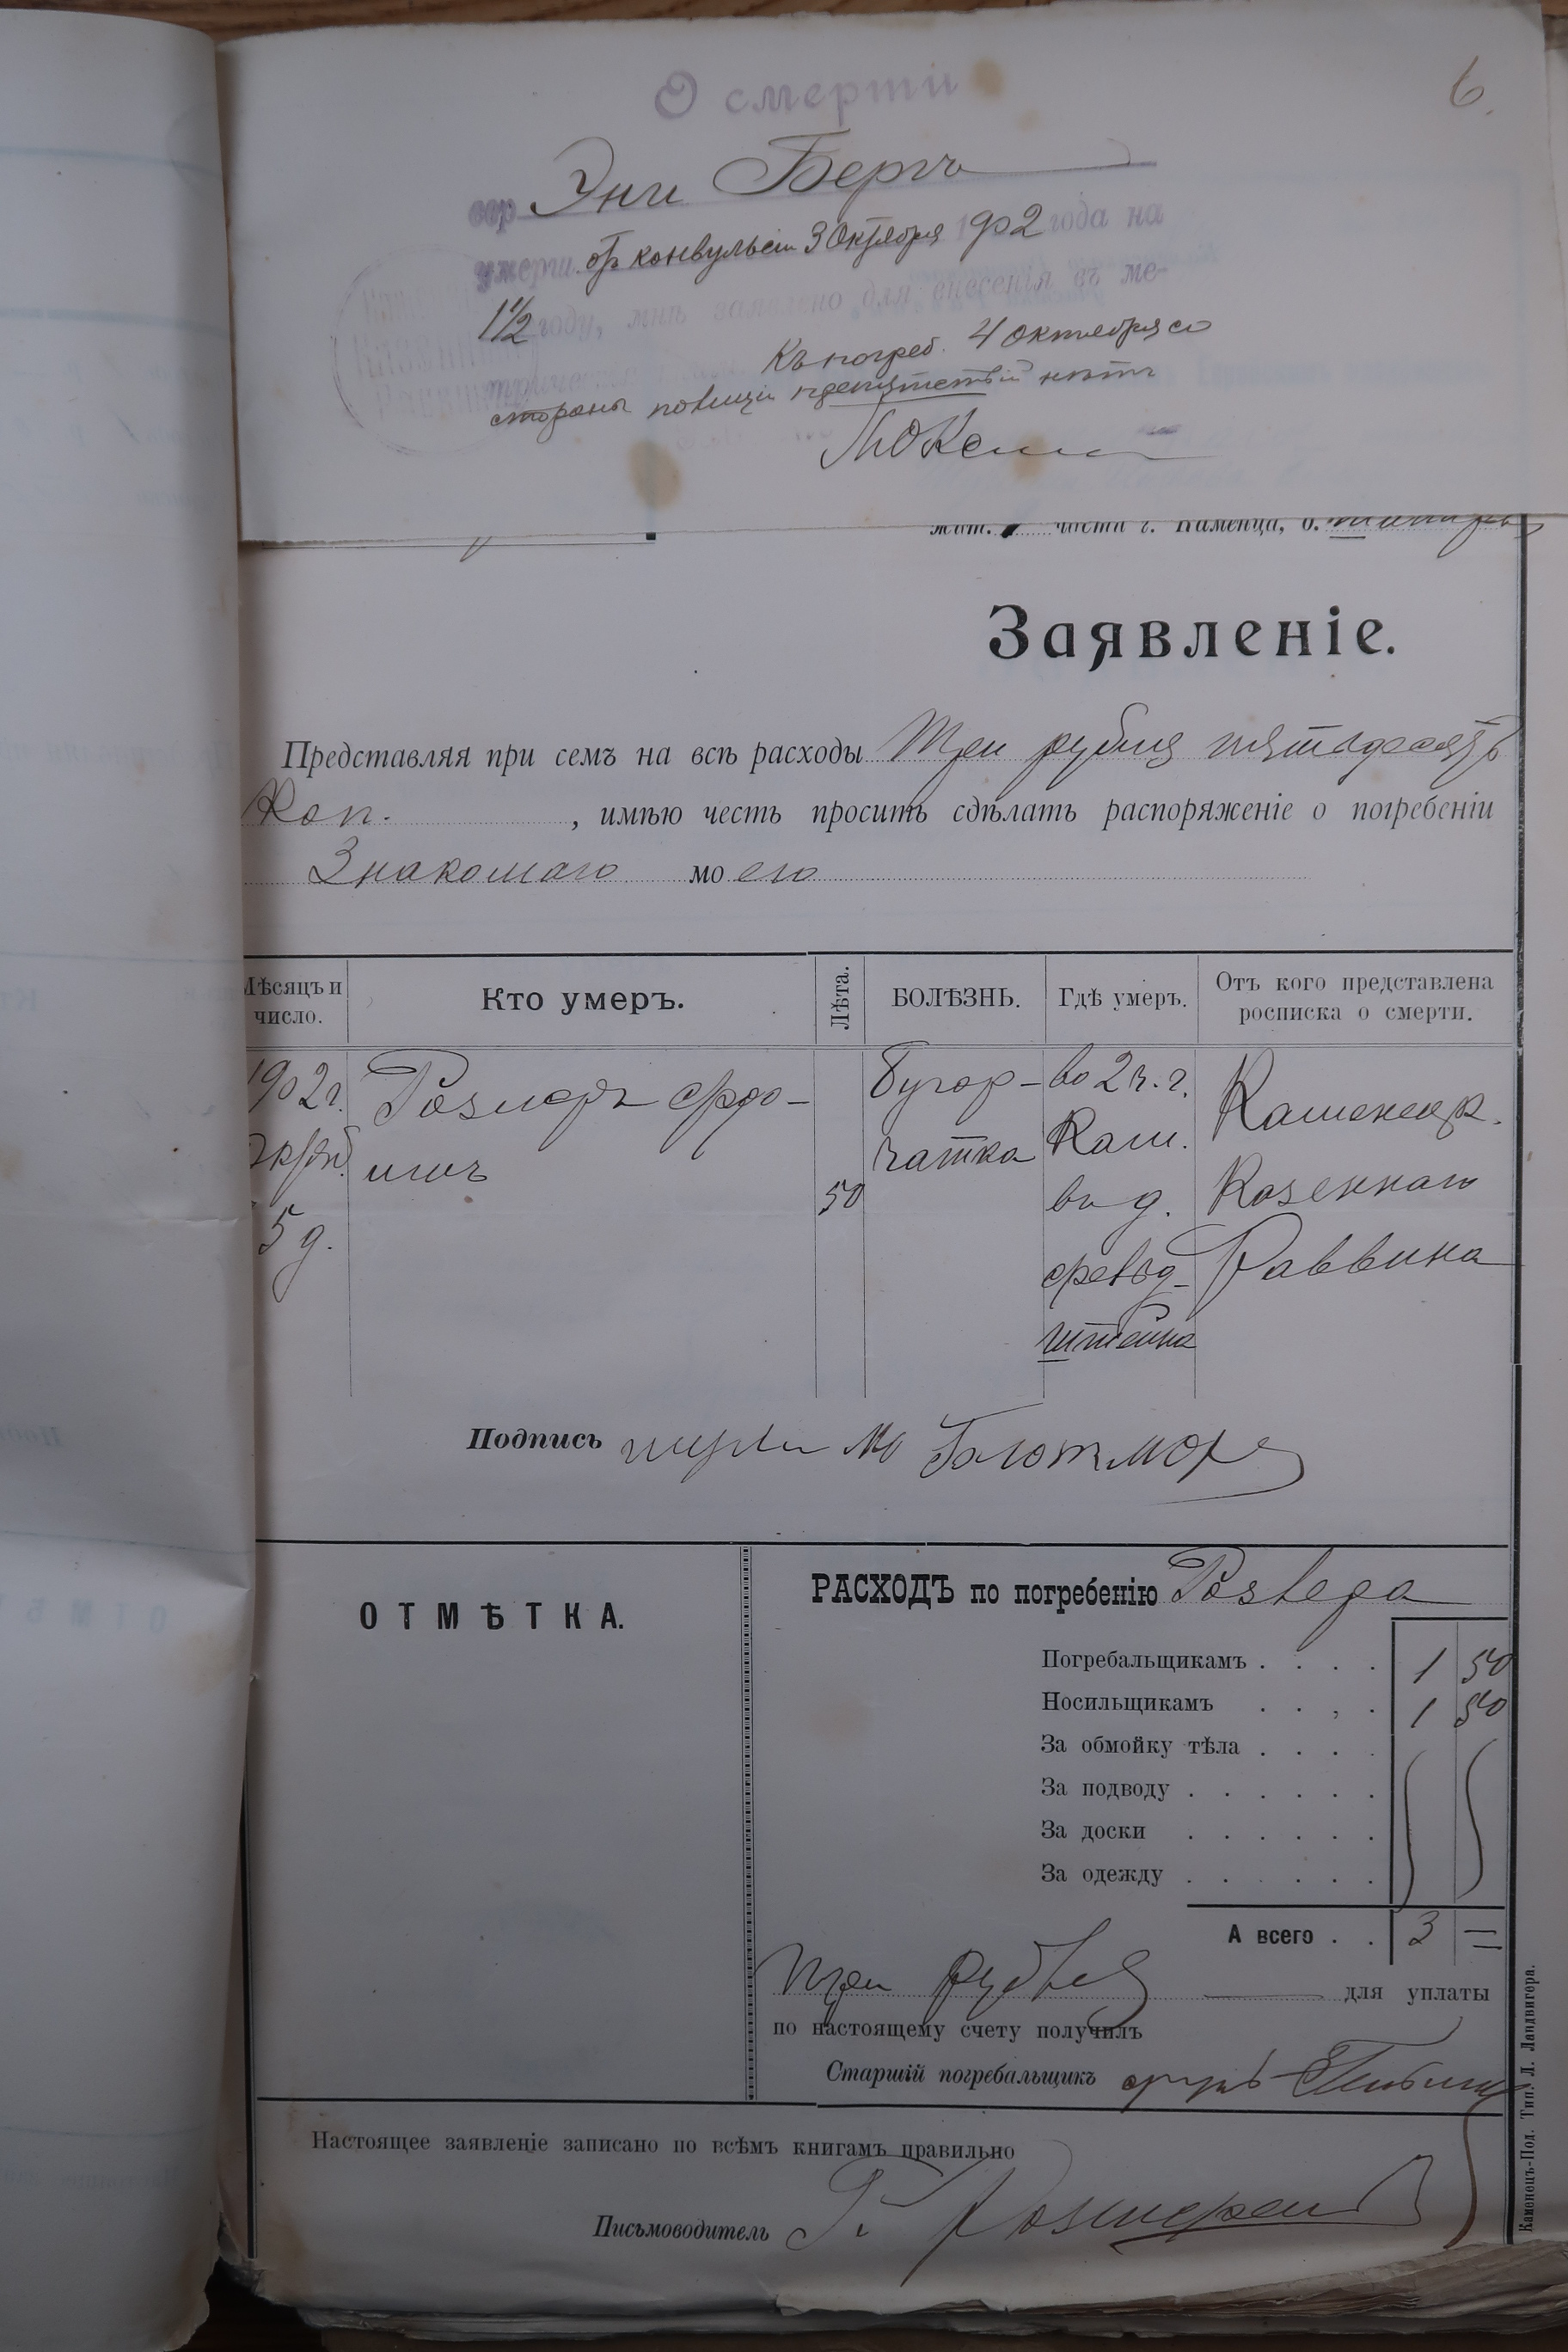 О смерти
6.
Эни Бергъ
умерш. отъ конвульсіи 3 Октября 1902 года на
1 1/2 году, мнѣ заявлено для внесенія въ ме-
Къ погреб. 4 Октября со
стороны полиціи препятствій нѣтъ
жит. части г. Каменца, д.
Заявленіе.
Представляя при семъ на всѣ расходы Три рубля пятьдесятъ
Коп. , имѣю честь просить сдѣлать распоряженіе о погребеніи
Знакомаго моего
Мѣсяцъ и число.
Кто умеръ.
Лѣта.
БОЛѢЗНЬ.
Гдѣ умеръ.
Отъ кого представлена росписка о смерти.
1902 г.
5 д.
50
Бугор-
чатка
во 2 ч. г.
Кам.
въ д.
штейна
Каменецк.
Казеннаго
Раввина
Подпись
ОТМѢТКА.
РАСХОДЪ по погребенію
Погребальщикамъ . . . . 1 50
Носильщикамъ . . , . 1 50
За обмойку тѣла . . . .
За подводу . . . . . .
За доски . . . . . .
За одежду . . . . . .
А всего . . 3 =
Три рубля для уплаты
по настоящему счету получилъ
Старшій погребальщикъ
Настоящее заявленіе записано по всѣмъ книгамъ правильно
Письмоводитель
Каменецъ-Под. Тип. Л. Ландвигера.